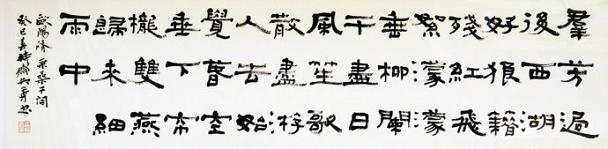 羣芳過
後西湖
好狼籍
殘紅飛
絮濛濛
垂柳闌
干盡日
風笙歌
散盡游
人去始
覺春空
垂下帘
櫳雙燕
歸來細
雨中
歐陽脩采桑子詞
癸巳春